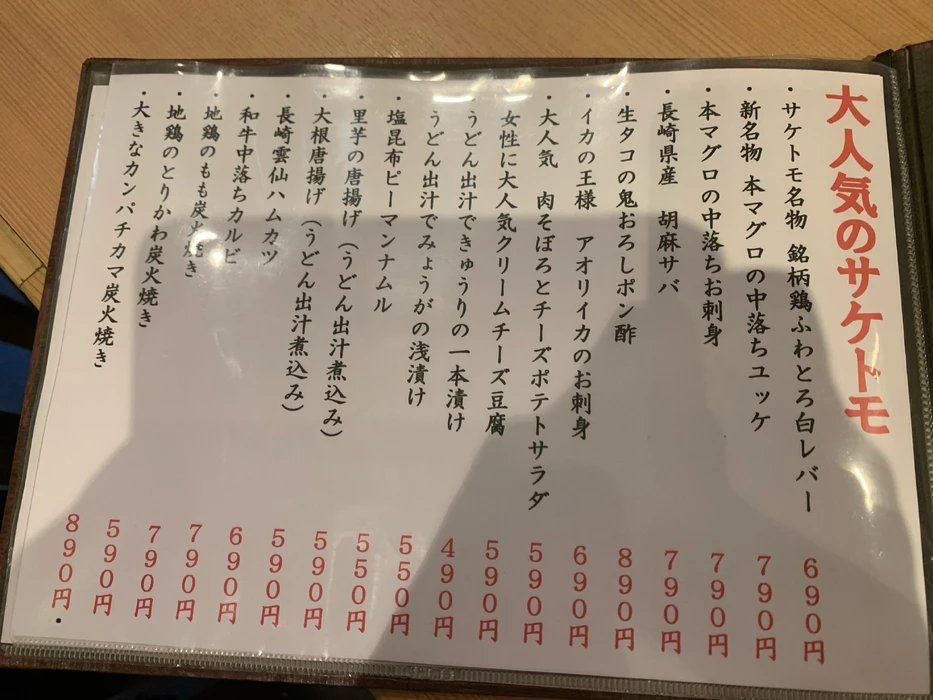 大人気のサケトモ
・サケトモ名物 銘柄鶏ふわとろ白レバー 690円
・新名物 本マグロの中落ちユッケ 790円
・本マグロの中落ちお刺身 790円
・長崎県産 胡麻サバ 790円
・生タコの鬼おろしポン酢 890円
・イカの王様 アオリイカのお刺身 690円
・大人気 肉そぼろとチーズポテトサラダ 590円
・女性に大人気クリームチーズ豆腐 590円
・うどん出汁できゅうりの一本漬け 490円
・うどん出汁でみょうがの浅漬け 550円
・塩昆布ピーマンナムル 550円
・里芋の唐揚げ（うどん出汁煮込み） 590円
・大根唐揚げ（うどん出汁煮込み） 590円
・長崎雲仙ハムカツ 690円
・和牛中落ちカルビ 790円
・地鶏のもも炭火焼き 790円
・地鶏のとりかわ炭火焼き 590円
・大きなカンパチカマ炭火焼き 890円